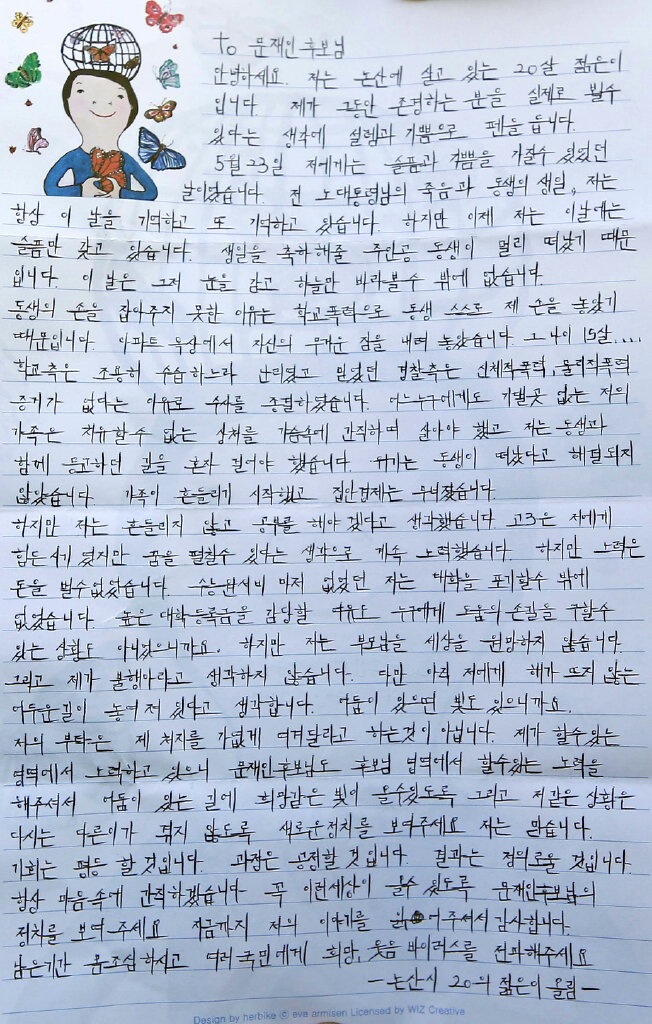 to 문재인 후보님
안녕하세요. 저는 논산에 살고 있는 20살 젊은이
입니다. 제가 그동안 존경하는 분을 실제로 뵐수
있다는 생각에 설렘과 기쁨으로 펜을 듭니다.
5월 23일 저에게는 슬픔과 기쁨을 가질수 있었던
날이었습니다. 전 노대통령님의 죽음과 동생의 생일, 저는
항상 이 날을 기억하고 또 기억하고 있습니다. 하지만 이제 저는 이날에는
슬픔만 갖고 있습니다. 생일을 축하해줄 주인공 동생이 멀리 떠났기 때문
입니다. 이 날은 그저 눈을 감고 하늘만 바라볼수 밖에 없습니다.
동생의 손을 잡아주지 못한 이유는 학교폭력으로 동생 스스로 제 손을 놓았기
때문입니다. 아파트 옥상에서 자신의 무거운 짐을 내려 놓았습니다. 그 나이 15살....
학교측은 조용히 수습하느라 난리였고 믿었던 경찰측은 신체적폭력, 물리적폭력
증거가 없다는 이유로 수사를 종결하였습니다. 어느누구에게도 기댈곳 없는 저의
가족은 치유할수 없는 상처를 가슴속에 간직하며 살아야 했고 저는 동생과
함께 등교하던 길을 혼자 걸어야 했습니다. 위기는 동생이 떠났다고 해결되지
않았습니다. 가족이 흔들리기 시작했고 집안경제는 무너졌습니다.
하지만 저는 흔들리지 않고 공부를 해야겠다고 생각했습니다. 고3은 저에게
힘든 시기 였지만 꿈을 펼칠수 있다는 생각으로 계속 노력했습니다. 하지만 노력은
돈을 벌수없었습니다. 수능원서비 마저 없었던 저는 대학을 포기할수 밖에
없었습니다. 높은 대학등록금을 감당할 여유도 누구에게 도움의 손길을 구할수
있는 상황도 아니었으니까요. 하지만 저는 부모님을 세상을 원망하지 않습니다.
그리고 제가 불행아라고 생각하지 않습니다. 다만 아직 저에게 해가 뜨지 않는
어두운길이 놓여져 있다고 생각합니다. 어둠이 있으면 빛도 있으니까요.
저의 부탁은 제 처지를 가엾게 여겨달라고 하는것이 아닙니다. 제가 할수있는
영역에서 노력하고 있으니 문재인후보님도 후보님 영역에서 할수있는 노력을
해주셔서 어둠이 있는 길에 희망같은 빛이 올수있도록 그리고 저같은 상황은
다시는 다른이가 겪지 않도록 새로운정치를 보여주세요 저는 믿습니다.
기회는 평등 할 것입니다. 과정은 공정할 것 입니다. 결과는 정의로울 것입니다.
항상 마음속에 간직하겠습니다 꼭 이런세상이 올수 있도록 문재인후보님의
정치를 보여 주세요 지금까지 저의 이야기를 읽어주셔서 감사합니다.
남은기간 몸조심 하시고 여러 국민에게 희망, 웃음 바이러스를 전파해주세요
-논산시 20의 젊은이 올림-
Design by herbike ⓒ eva armisen Licensed by WIZ Creative